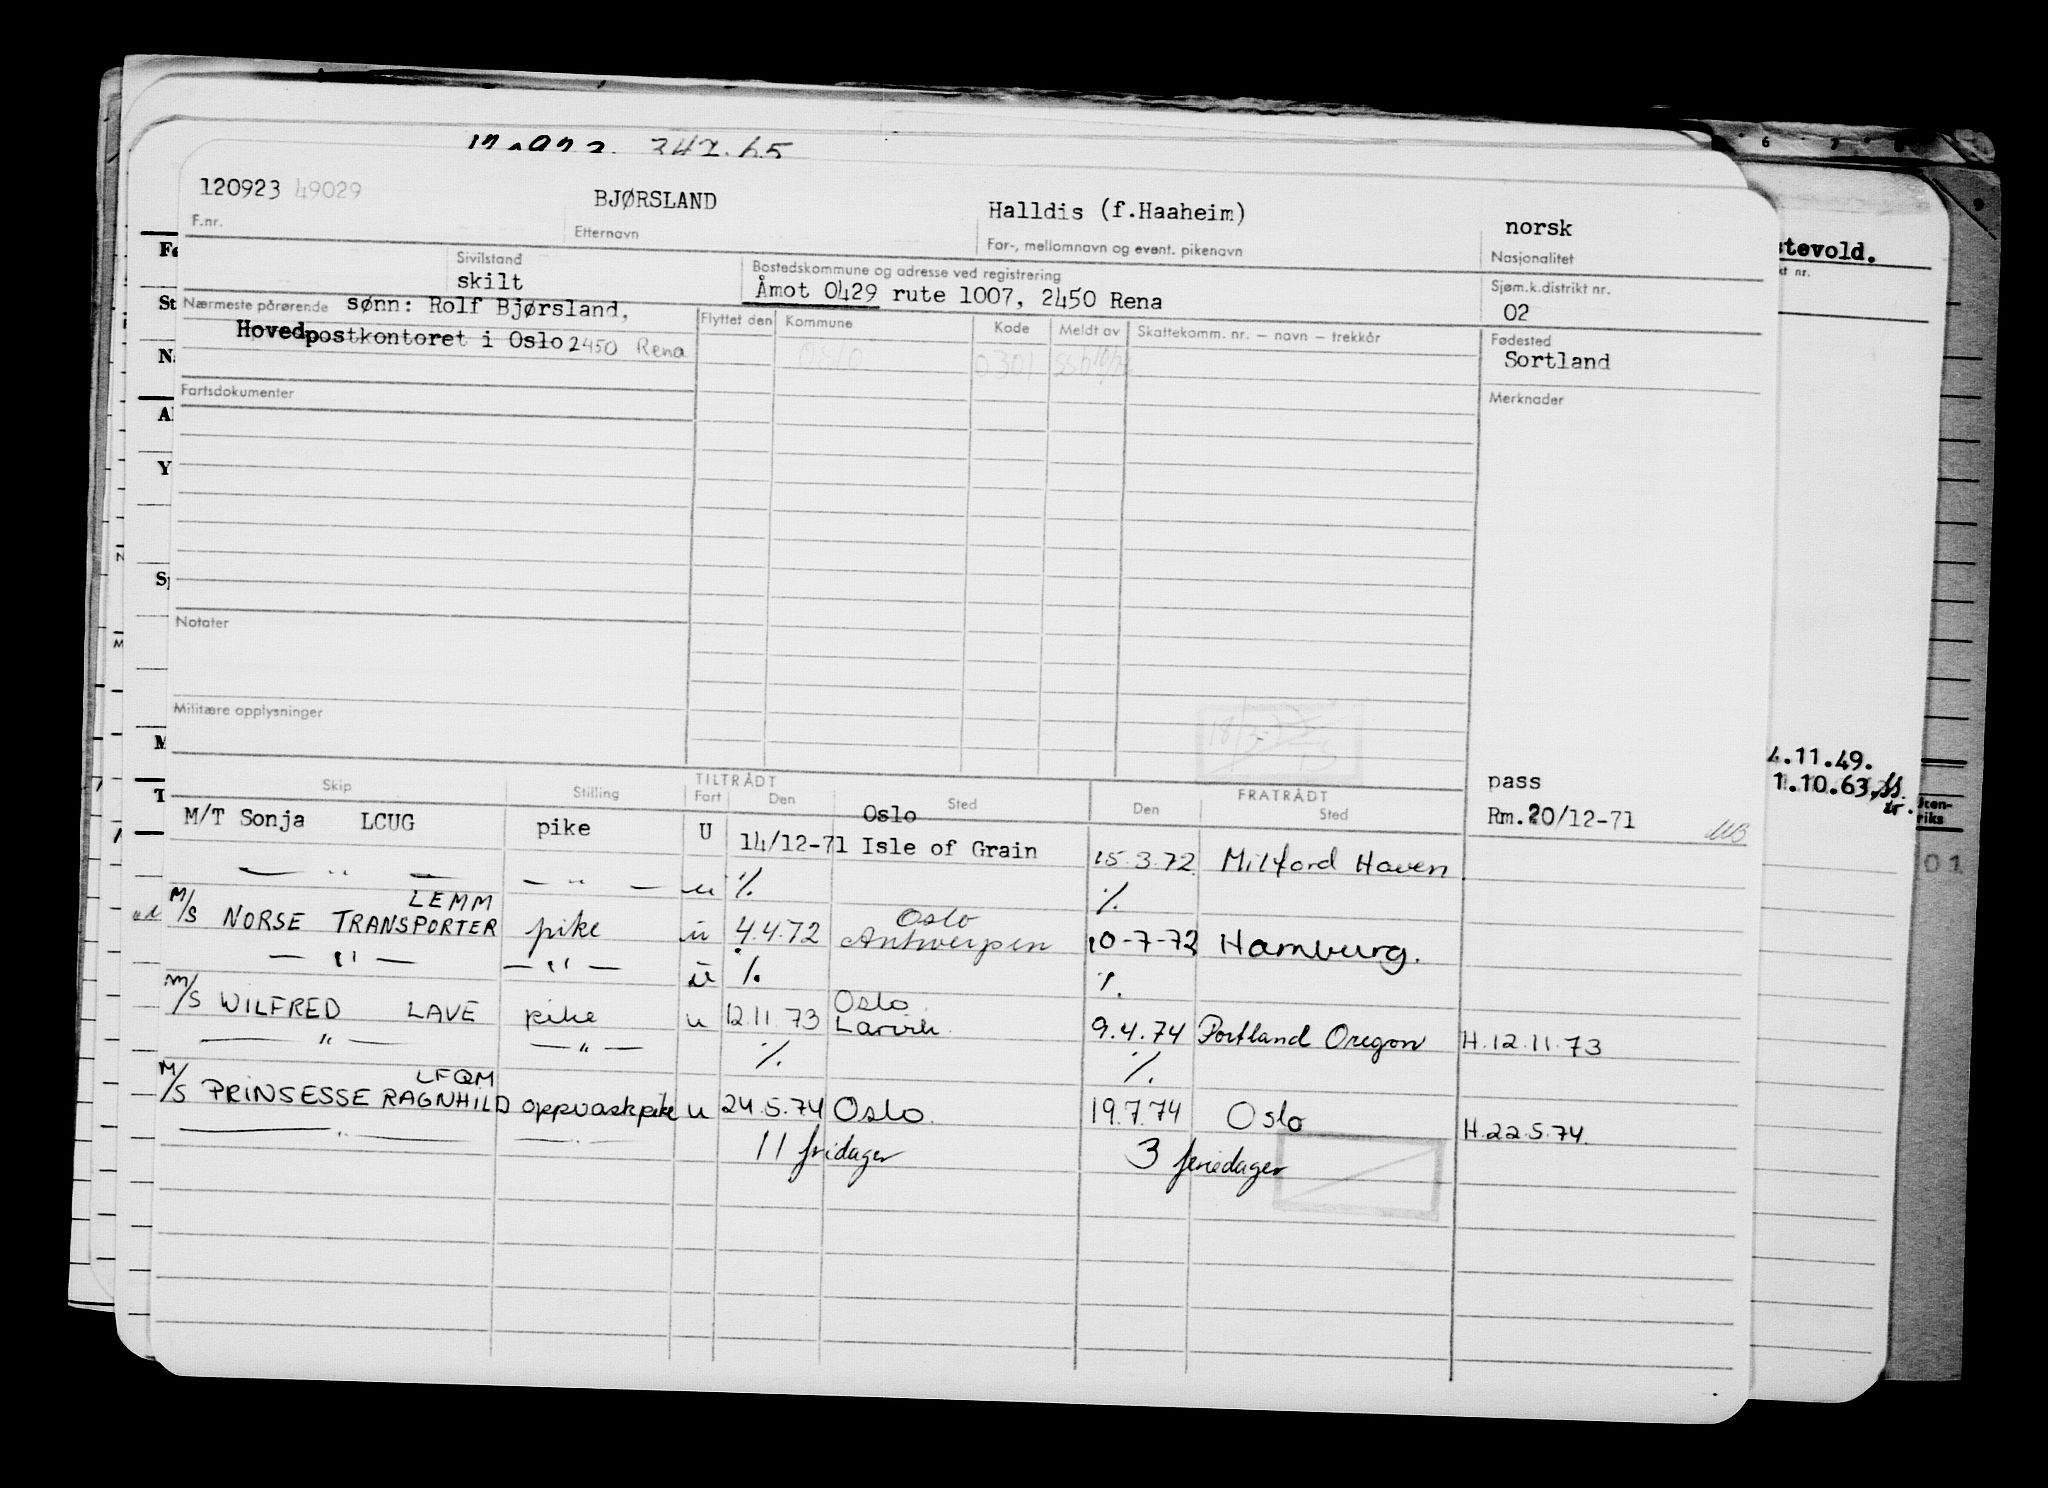 120923 49029 BJØRSLAND Halldis (f.Haaheim) norsk
F.nr. Etternavn For-, mellomnavn og event. pikenavn Nasjonalitet
Sivilstand Bostedskommune og adresse ved registrering Sjøm.k.distrikt nr.
skilt Åmot 0429 rute 1007, 2450 Rena 02
Nærmeste pårørende sønn: Rolf Bjørsland, Flyttet den Kommune Kode Meldt av Skattekomm. nr. – navn – trekkår Fødested
Hovedpostkontoret i Oslo 2450 Rena Oslo 0301 Sortland
Fartsdokumenter Merknader
Notater
Militære opplysninger
pass
Skip Stilling TILTRÅDT FRATRÅDT
Fart Den Sted Den Sted
Rm.20/12-71
M/T Sonja LCUG pike U 14/12-71 Oslo
Isle of Grain 15.3.72 Milford Haven
— " — — " — u % %
LEMM
M/S NORSE TRANSPORTER pike u 4.4.72 Oslo
Antwerpen 10-7-72 Hamburg.
— " — — " — u % %
M/S WILFRED LAVE pike u 12.11.73 Oslo
Larvik 9.4.74 Portland Oregon H.12.11.73
— " — — " — % %
LFQM
M/S PRINSESSE RAGNHILD oppvaskpike u 24.5.74 Oslo. 19.7.74 Oslo H.22.5.74.
— " — — " — 11 fridager 3 feriedager
stevold.
kt nr.
4.11.49.
1.10.63
01